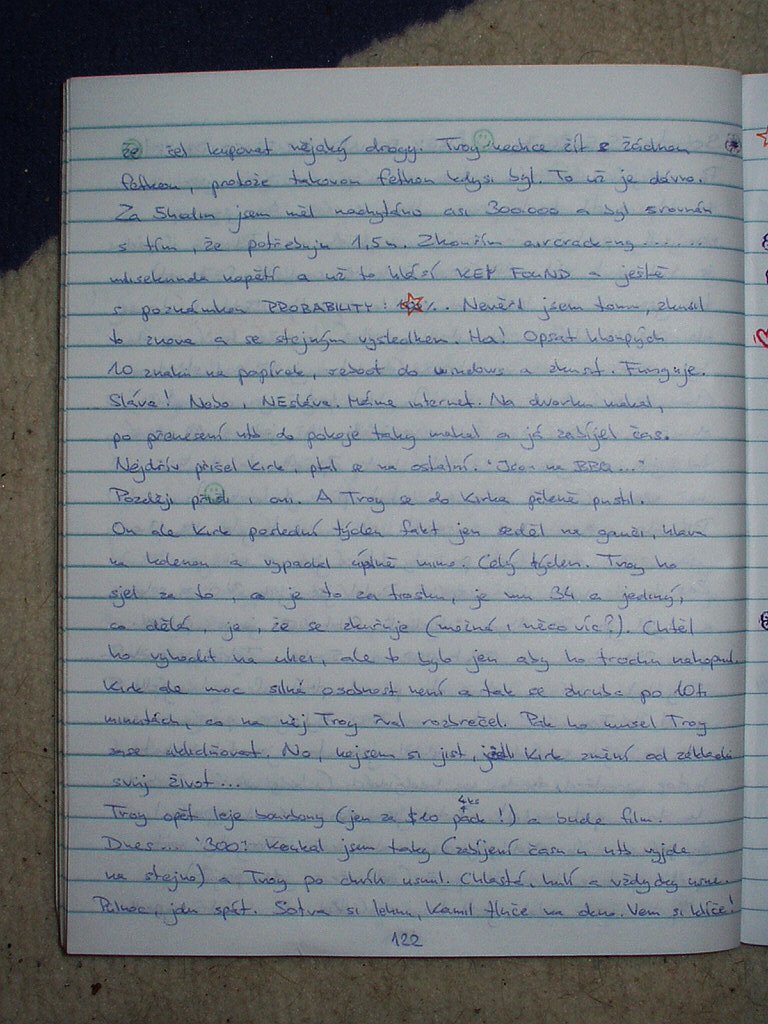 že šel kupovat nějaký drogy. Troy nechce žít s žádnou
feťkou, protože takovou feťkou kdysi byl. To už je dávno.
Za 5hodin jsem měl nachytáno asi 300.000 a byl srovnán
s tím, že potřebuju 1,5m. Zkouším aircrack-ng .......
milisekunda napětí a už to hlásí KEY FOUND a ještě
s poznámkou PROBABILITY: %. Nevěřil jsem tomu, zkusil
to znova a se stejným výsledkem. Ha! Opsat hloupých
10 znaků na papírek, reboot do windows a zkusit. Funguje.
Sláva! Nebo, NEsláva. Máme internet. Na dvorku makal,
po přenesení ntb do pokoje taky makal a já zabíjel čas.
Nejdřív přišel Kirk, ptal se na ostatní. "Jsou na BBQ..."
Později přišli i oni. A Troy se do Kirka pěkně pustil.
On ale Kirk poslední týden fakt jen seděl na gauči, hlava
na kolenou a vypadal úplně mimo. Celý týden. Troy ho
sjel za to, a je to za trosku, je mu 34 a jediný,
co dělá, je, že se zkuřuje (možná i něco víc?). Chtěl
ho vyhodit na ulici, ale to bylo jen aby ho trochu nakopnul.
Kirk ale moc silná osobnost není a tak se zhruba po 10ti
minutách, co na něj Troy řval rozbrečel. Pak ho musel Troy
zase uklidňovat. No, nejsem si jist, jestli Kirk změní od základu
svůj život...
Troy opět leje bourbony (jen za $10 4ks pack!) a bude film.
Dnes... '300'. Koukal jsem taky (zabíjení času u ntb vyjde
na stejno) a Troy po chvíli usnul. Chlastá, hulí a vždycky usne.
Půlnoc, jdu spát. Sotva si lehnu, Kamil tluče na okno. Vem si klíče!
122